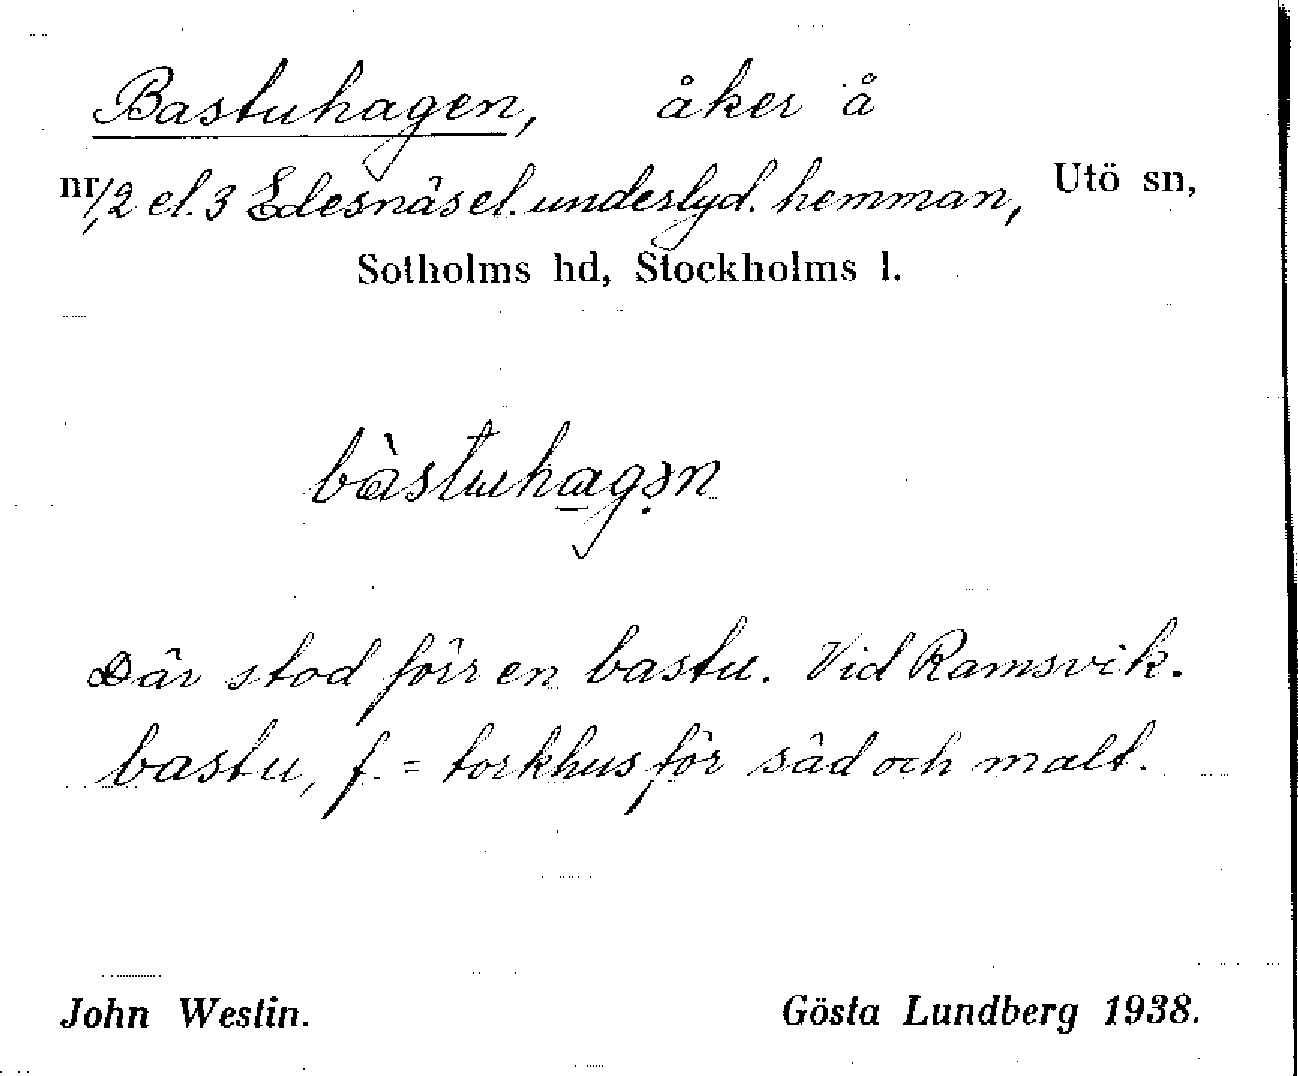 Bastuhagen, åker å
nr 1,2 el. 3 Edesnäs el. underlyd. hemman, Utö sn,
Sotholms hd, Stockholms l.
bàstuhagən
Där stod förr en bastu. Vid Ramsvik.
bastu, f. = torkhus för säd och malt.
John Westin. Gösta Lundberg 1938.